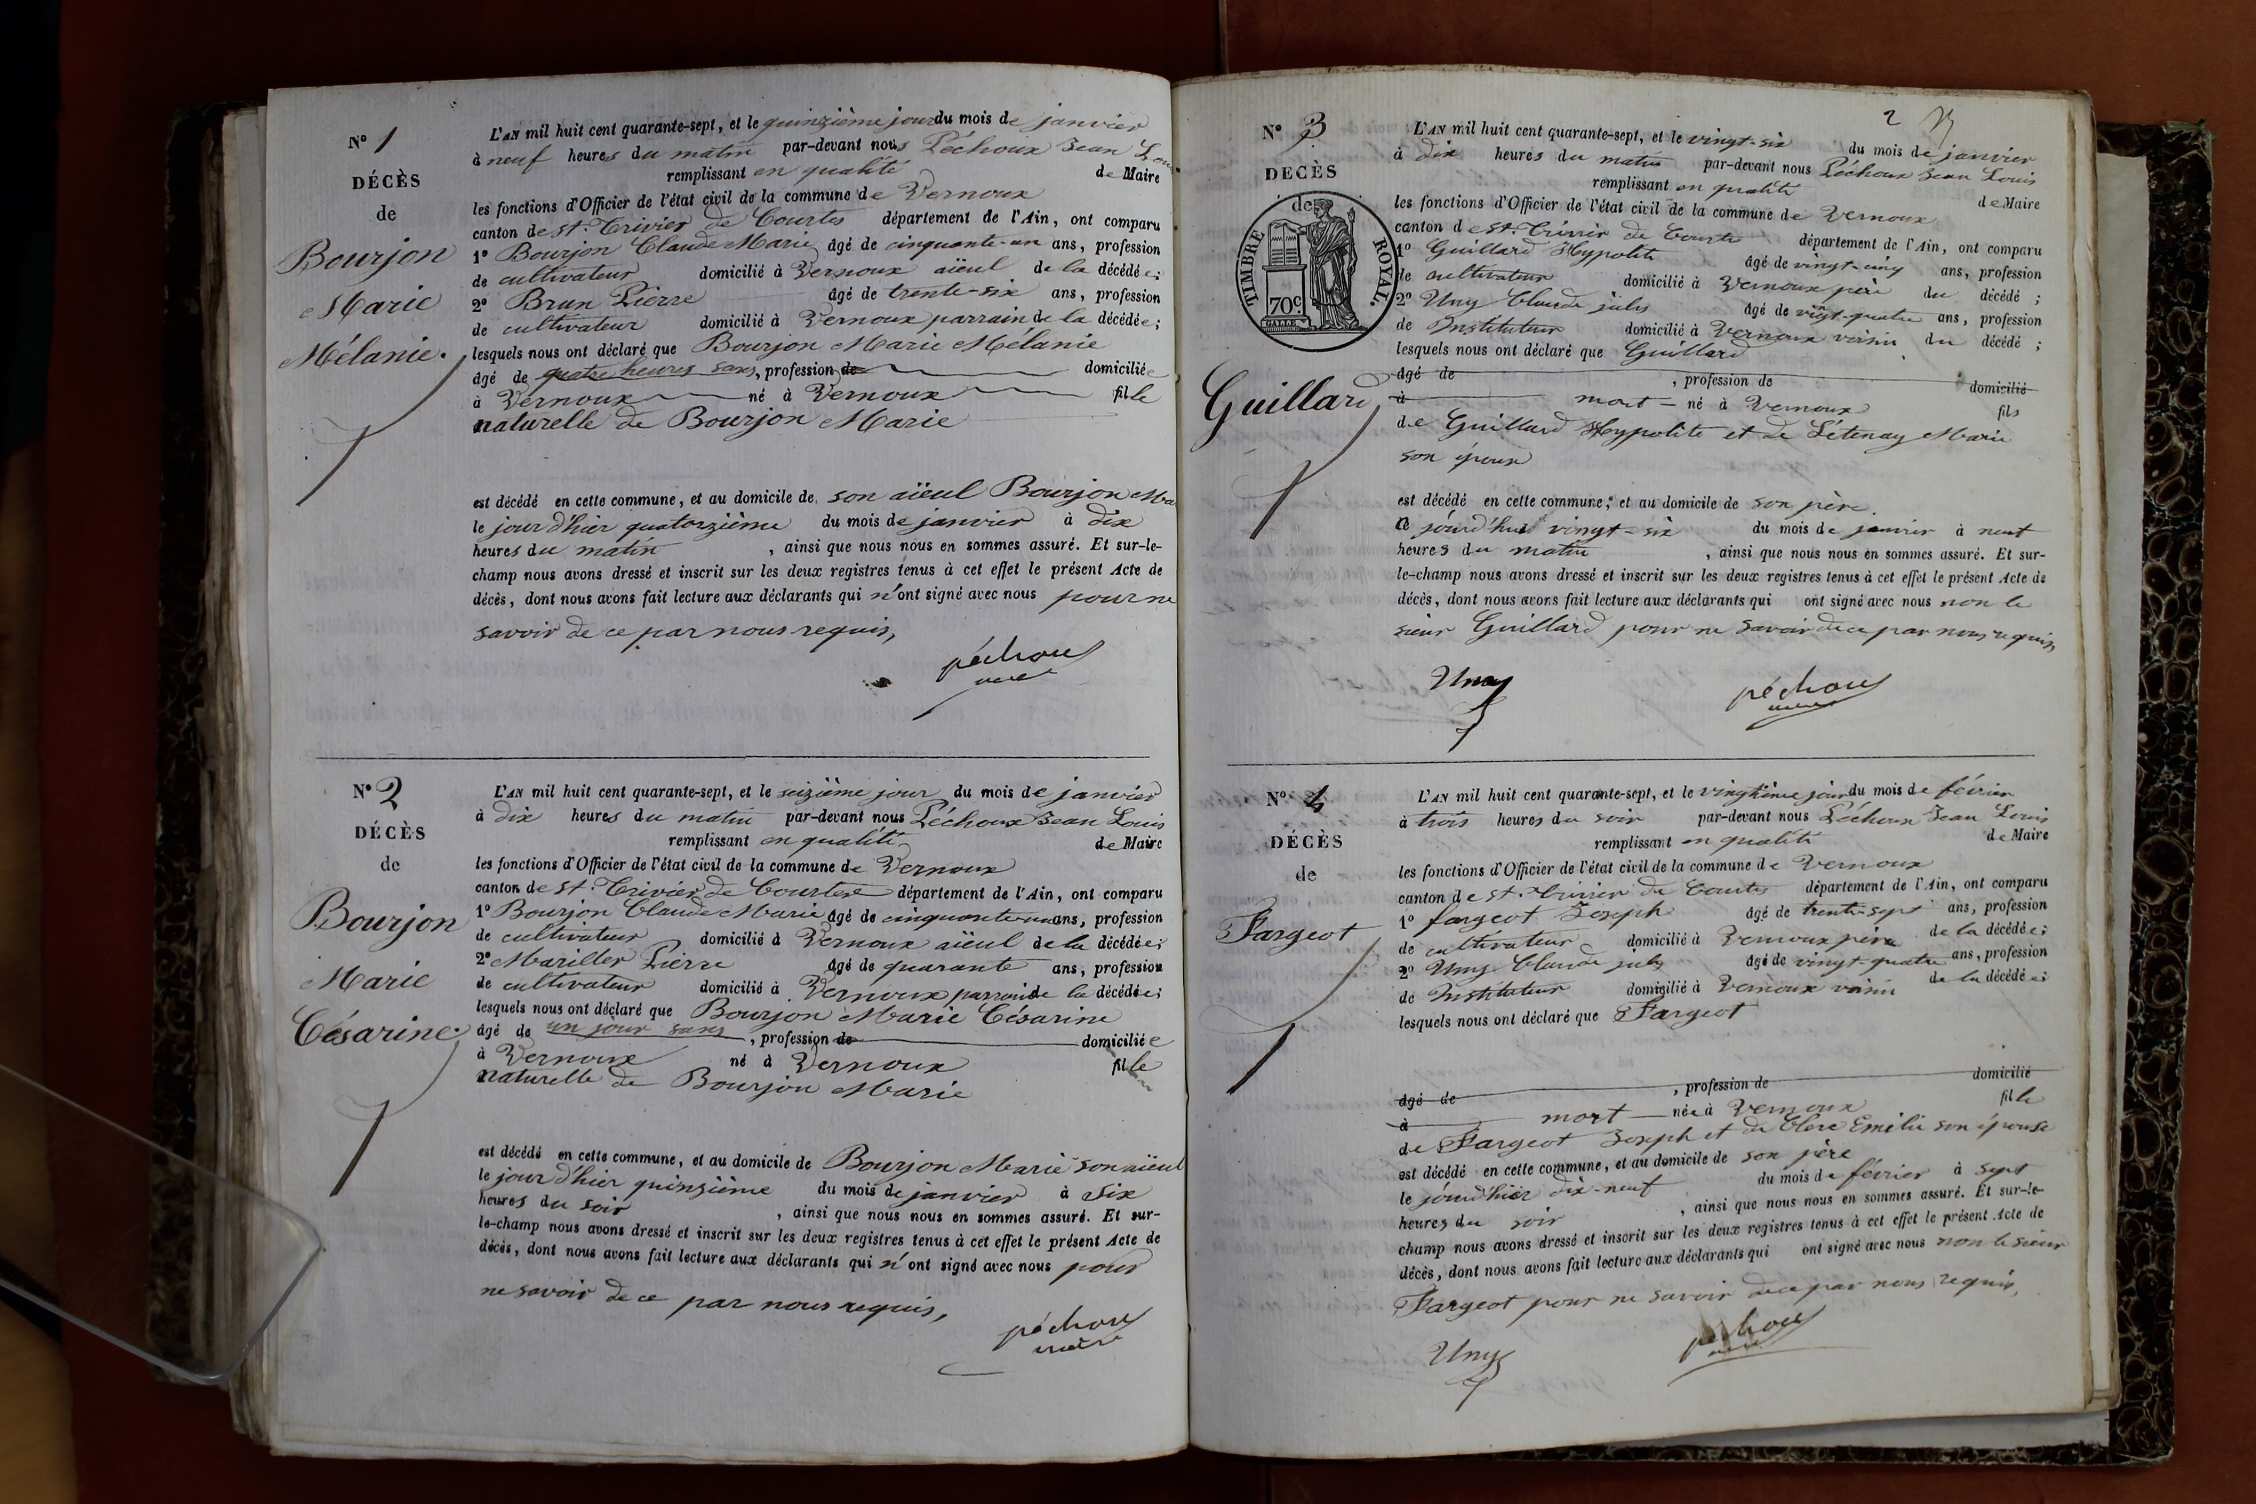 N° 1
DÉCÈS
de
Bourjon
Marie
Mélanie.
L'AN mil huit cent quarante-sept, et le quinzième jour du mois de janvier
à neuf heures du matin par-devant nous Péchoux Jean Louis
remplissant en qualité de Maire
les fonctions d'Officier de l'état civil de la commune de Vernoux
canton de St. Trivier de Courtes département de l'Ain, ont comparu
1° Bourjon Claude Marie âgé de cinquante-un ans, profession
de cultivateur domicilié à Vernoux aïeul de la décédée;
2° Brun Pierre âgé de trente-six ans, profession
de cultivateur domicilié à Vernoux parrain de la décédée;
lesquels nous ont déclaré que Bourjon Marie Mélanie
âgé de quatre heures sans, profession de domiciliée
à Vernoux né à Vernoux fille
naturelle de Bourjon Marie
est décédé en cette commune, et au domicile de son aïeul Bourjon Ma
le jour d'hier quatorzième du mois de janvier à dix
heures du matin, ainsi que nous nous en sommes assuré. Et sur-le-
champ nous avons dressé et inscrit sur les deux registres tenus à cet effet le présent Acte de
décès, dont nous avons fait lecture aux déclarants qui n'ont signé avec nous pour ne
savoir de ce par nous requis,
péchoux
maire
N° 2
DÉCÈS
de
Bourjon
Marie
Césarine.
L'AN mil huit cent quarante-sept, et le seizième jour du mois de janvier
à dix heures du matin par-devant nous Péchoux Jean Louis
remplissant en qualité de Maire
les fonctions d'Officier de l'état civil de la commune de Vernoux
canton de St. Trivier de Courtes département de l'Ain, ont comparu
1° Bourjon Claude Marie âgé de cinquante-un ans, profession
de cultivateur domicilié à Vernoux aïeul de la décédée;
2° Mariller Pierre âgé de quarante ans, profession
de cultivateur domicilié à Vernoux parrain de la décédée;
lesquels nous ont déclaré que Bourjon Marie Césarine
âgé de un jour sans, profession de domiciliée
à Vernoux né à Vernoux fille
naturelle de Bourjon Marie
est décédé en cette commune, et au domicile de Bourjon Marie son aïeul
le jour d'hier quinzième du mois de janvier à six
heures du soir, ainsi que nous nous en sommes assuré. Et sur-
le-champ nous avons dressé et inscrit sur les deux registres tenus à cet effet le présent Acte de
décès, dont nous avons fait lecture aux déclarants qui n'ont signé avec nous pour
ne savoir de ce par nous requis,
péchoux
maire
2
N° 3
DÉCÈS
de
TIMBRE ROYAL.
70c.
Guillard
L'AN mil huit cent quarante-sept, et le vingt-six du mois de janvier
à dix heures du matin par-devant nous Péchoux Jean Louis
remplissant en qualité de Maire
les fonctions d'Officier de l'état civil de la commune de Vernoux
canton de St. Trivier de Courtes département de l'Ain, ont comparu
1° Guillard Hypolite âgé de vingt-cinq ans, profession
de cultivateur domicilié à Vernoux père du décédé;
2° Uny Claude jules âgé de vingt-quatre ans, profession
de Instituteur domicilié à Vernoux voisin du décédé;
lesquels nous ont déclaré que Guillard
âgé de, profession de domicilié
à mort né à Vernoux fils
de Guillard Hypolite et de Létenay Marie
son épouse
est décédé en cette commune, et au domicile de son père
ce jourd'hui vingt-six du mois de janvier à neuf
heures du matin, ainsi que nous nous en sommes assuré. Et sur-
le-champ nous avons dressé et inscrit sur les deux registres tenus à cet effet le présent Acte de
décès, dont nous avons fait lecture aux déclarants qui ont signé avec nous non le
sieur Guillard pour ne savoir de ce par nous requis,
Uny
péchoux
maire
N° 4
DÉCÈS
de
Fargeot
L'AN mil huit cent quarante-sept, et le vingtième jour du mois de février
à trois heures du soir par-devant nous Péchoux Jean Louis
remplissant en qualité de Maire
les fonctions d'Officier de l'état civil de la commune de Vernoux
canton de St. Trivier de Courtes département de l'Ain, ont comparu
1° Fargeot Joseph âgé de trente-sept ans, profession
de cultivateur domicilié à Vernoux père de la décédée;
2° Uny Claude jules âgé de vingt-quatre ans, profession
de Instituteur domicilié à Vernoux voisin de la décédée;
lesquels nous ont déclaré que Fargeot
âgé de, profession de domicilié
à mort née à Vernoux fille
de Fargeot Joseph et de Clerc Emilie son épouse
est décédé en cette commune, et au domicile de son père
le jourd'hier dix-neuf du mois de février à sept
heures du soir, ainsi que nous nous en sommes assuré. Et sur-le-
champ nous avons dressé et inscrit sur les deux registres tenus à cet effet le présent Acte de
décès, dont nous avons fait lecture aux déclarants qui ont signé avec nous non le sieur
Fargeot pour ne savoir de ce par nous requis,
Uny
péchoux
maire